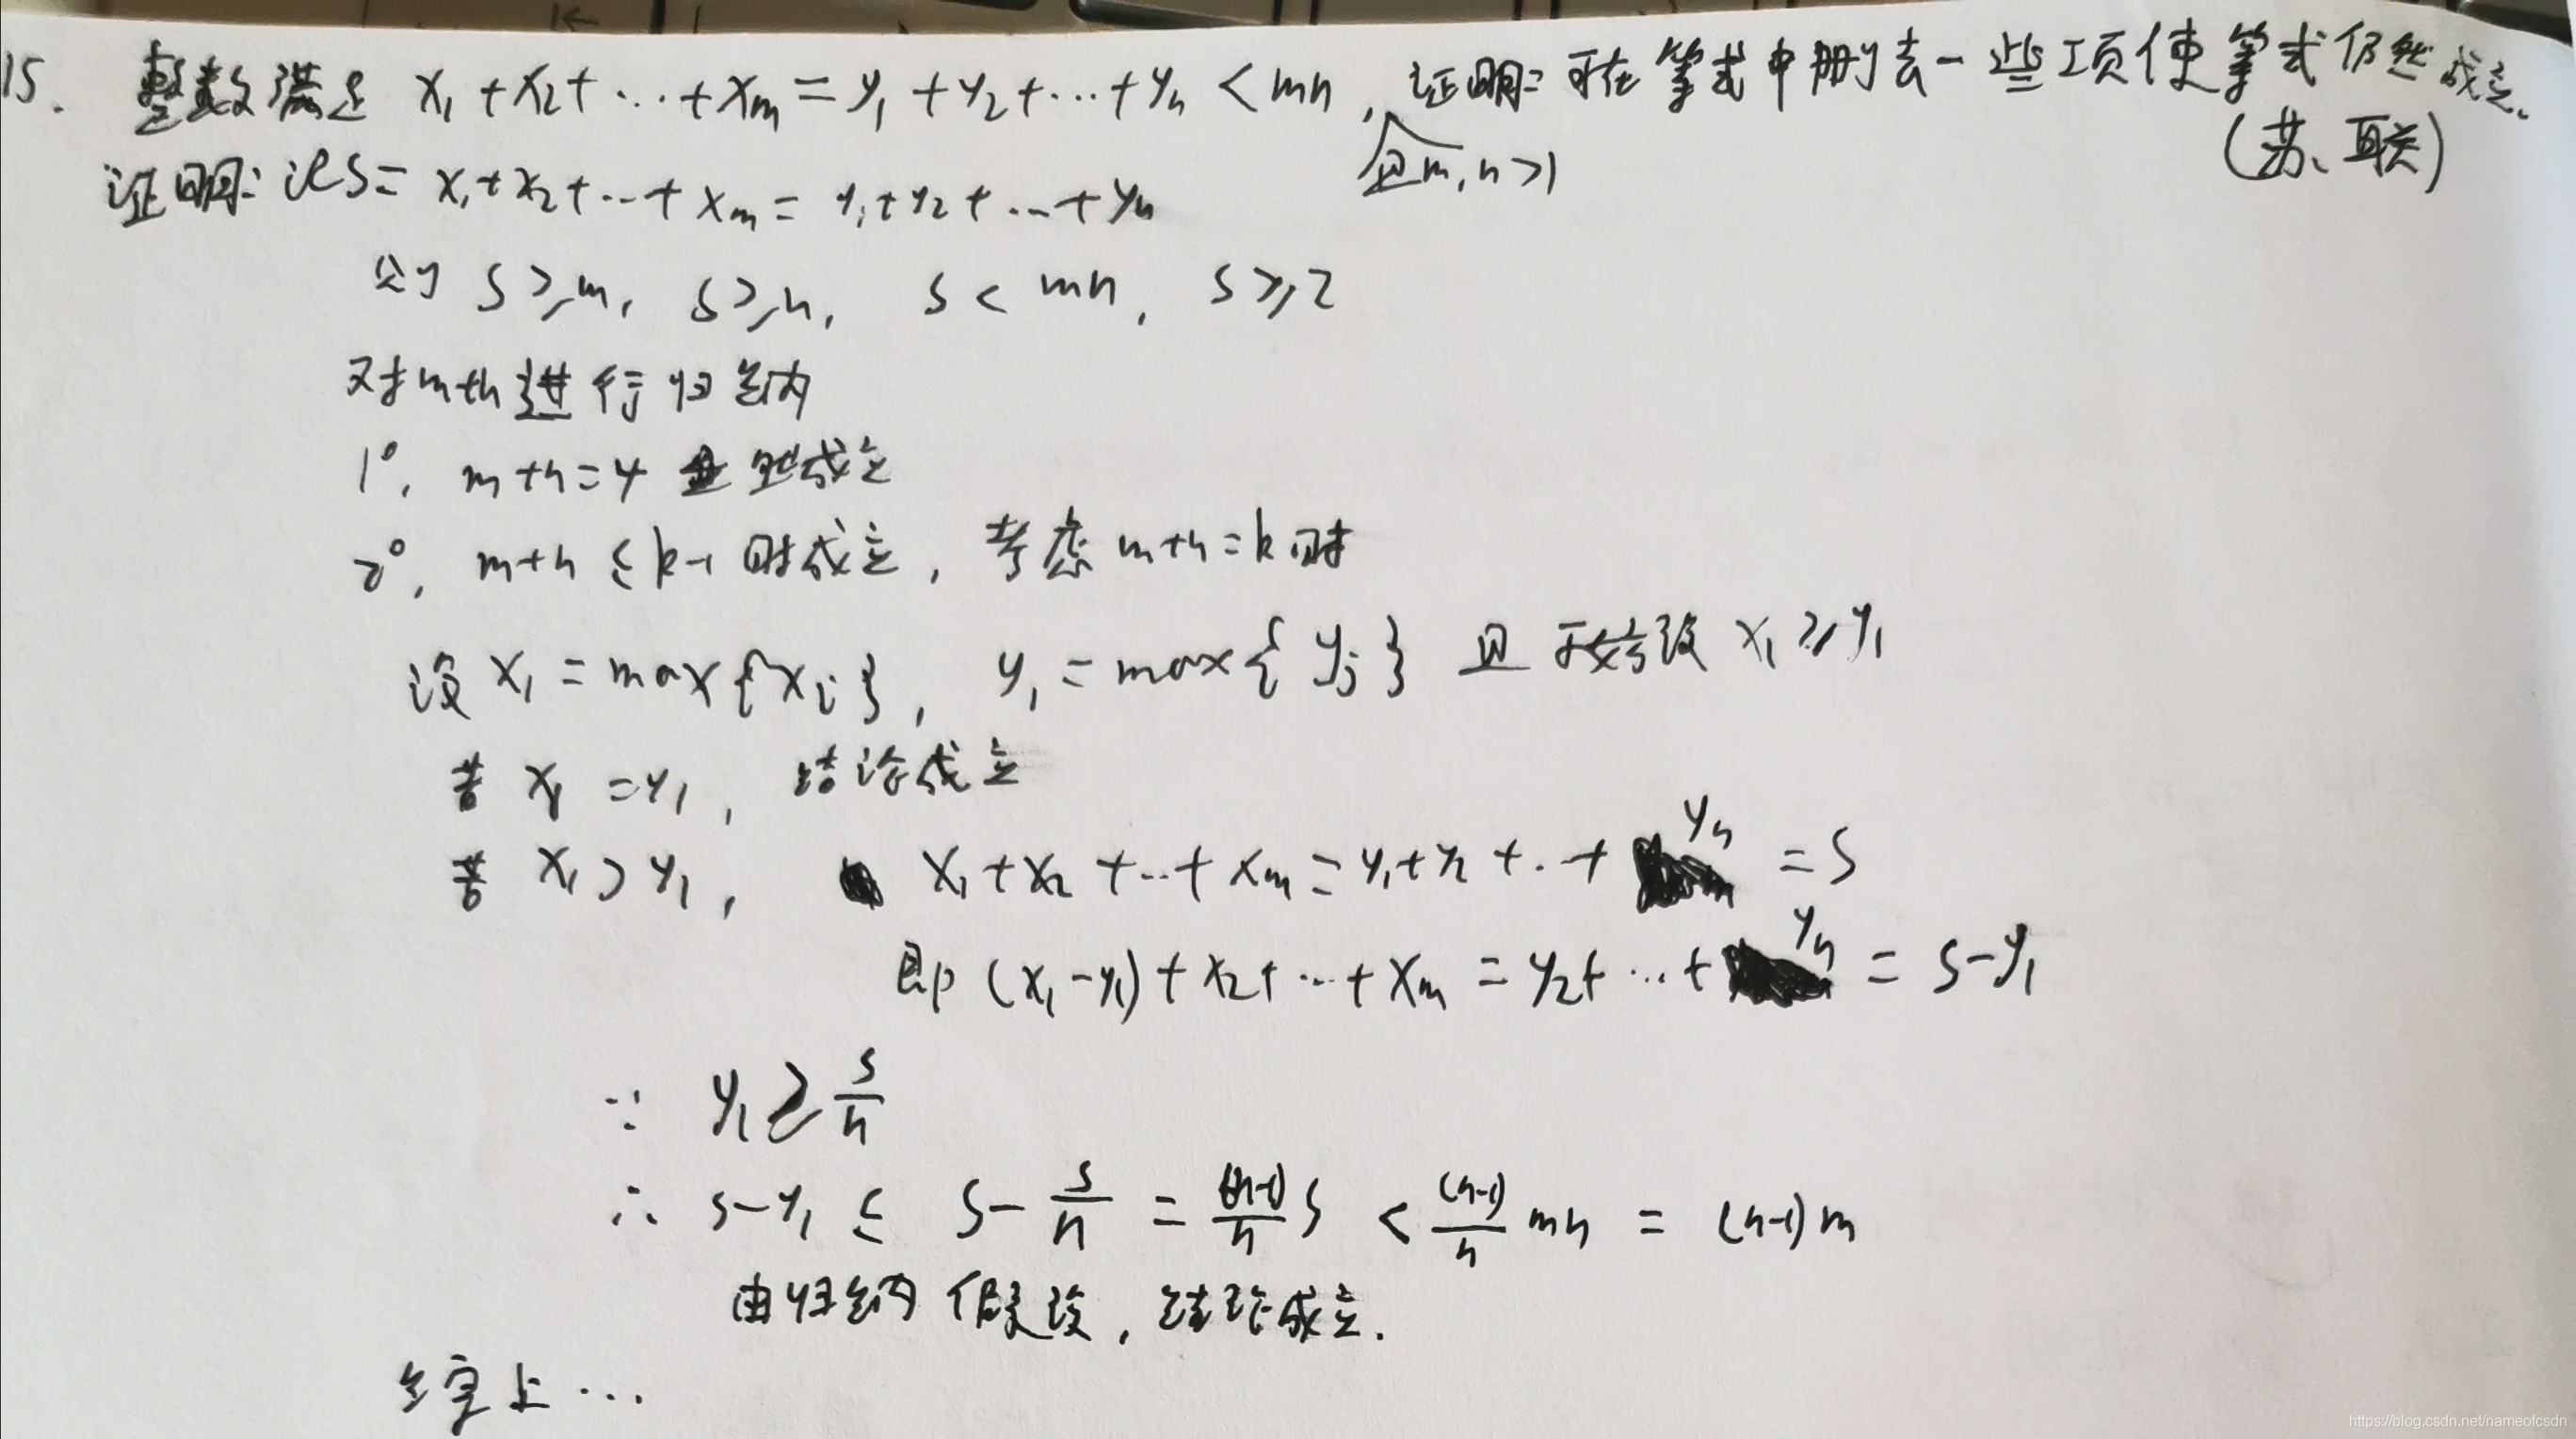 15. 整数满足 x₁+x₂+…+xₘ=y₁+y₂+…+yₙ<mn, 且m,n>1 证明:可在等式中删去一些项使等式仍然成立.
(苏、联)
证明:记S= x₁+x₂+…+xₘ= y₁+y₂+…+yₙ
则 S≥m, S≥n, S<mn, S≥2
对m+n进行归纳
1°, m+n=4 时成立
2°, m+n≤k-1时成立, 考虑m+n=k时
设x₁=max{xᵢ}, y₁=max{yⱼ} 且不妨设x₁≥y₁
若 x₁=y₁, 结论成立
若 x₁>y₁, x₁+x₂+…+xₘ=y₁+y₂+…+yₙ=S
即(x₁-y₁)+x₂+…+xₘ=y₂+…+yₙ=S-y₁
∵ y₁≥S/n
∴ S-y₁≤S-S/n=(n-1)/n S<(n-1)/n mn=(n-1)m
由归纳假设, 结论成立.
综上…
https://blog.csdn.net/nameofcsdn